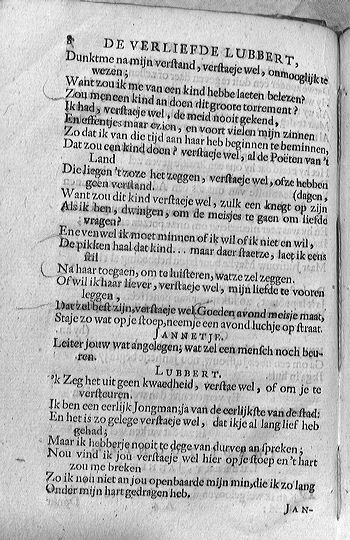 8 DE VERLIEFDE LUBBERT,
Dunktme na mijn verstand, verstaeje wel, onmooglijk te
wezen;
Want zou ik me van een kind hebbe laeten belezen?
Zou men een kind an doen dit groote torrement?
Ik had, verstaeje wel, de meid nooit gekend,
En effentjes maar ezien, en voort vielen mijn zinnen
Zo dat ik van die tijd aan haar heb beginnen te beminnen,
Dat zou een kind doen? verstaeje wel, al de Poëten van 't
Land
Die liegen 't zoze het zeggen, verstaeje wel, ofze hebben
geen verstand. (dagen,
Want zou dit kind verstaeje wel, zulk een knegt op zijn
Als ik ben, dwingen, om de meisjes te gaen om liefde
vragen?
Enevenwel ik moet minnen of ik wil of ik niet en wil,
De pikken haal dat kind... maar daer staetze, laet ik eens
stil
Na haar toegaen, om te luisteren, watze zel zeggen.
Of wil ik haar liever, verstaeje wel, mijn liefde te vooren
leggen,
Dat zel best zijn, verstaeje wel. Goeden avond meisje maat,
Staje zo wat op je stoep, neemje een avond luchje op straat.
JANNETJE.
Leiter jouw wat angelegen; wat zel een mensch noch beu-
ren.
LUBBERT.
'k Zeg het uit geen kwaedheid, verstaeje wel, of om je te
versteuren.
Ik ben een eerlijk Jongman; ja van de eerlijkste van de stad:
En het is zo gelege verstaeje wel, dat ikje al lang lief heb
gehad;
Maar ik hebberje nooit te dege van durven an spreken;
Nou vind ik jou verstaeje wel hier op je stoep en 't hart
zou me breken
Zo ik nou niet an jou openbaarde mijn min, die ik zo lang
Onder mijn hart gedragen heb.
JAN-